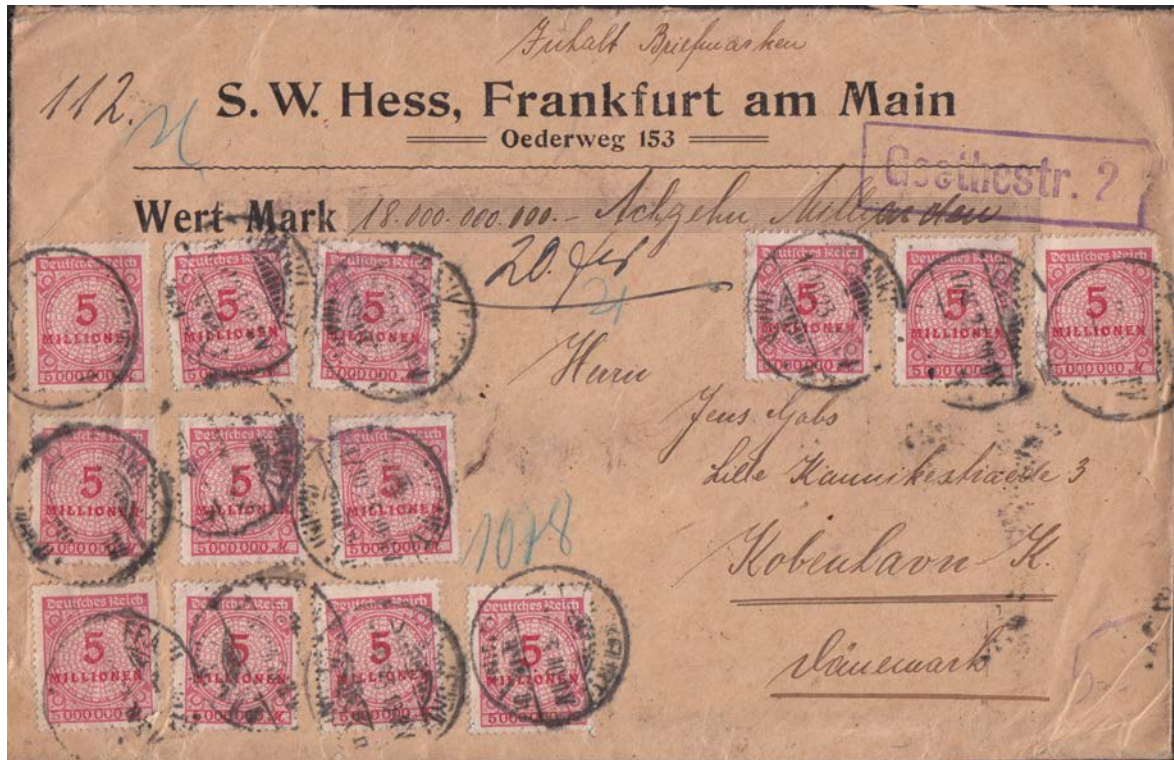 Inhalt Briefmarken
112.
S. W. Hess, Frankfurt am Main
Oederweg 153
Goethestr. 2
Wert Mark 18.000.000.000.- Achzehn Milliarden
20.
21
Deutsches Reich 5 MILLIONEN 5000000 M
Deutsches Reich 5 MILLIONEN 5000000 M
Deutsches Reich 5 MILLIONEN 5000000 M
Deutsches Reich 5 MILLIONEN 5000000 M
Deutsches Reich 5 MILLIONEN 5000000 M
Deutsches Reich 5 MILLIONEN 5000000 M
Herrn
Jens
Lille Kannikestraede 3
Deutsches Reich 5 MILLIONEN 5000000 M
Deutsches Reich 5 MILLIONEN 5000000 M
Deutsches Reich 5 MILLIONEN 5000000 M
1078
Kobenhavn K.
Dänemark
Deutsches Reich 5 MILLIONEN 5000000 M
Deutsches Reich 5 MILLIONEN 5000000 M
Deutsches Reich 5 MILLIONEN 5000000 M
Deutsches Reich 5 MILLIONEN 5000000 M